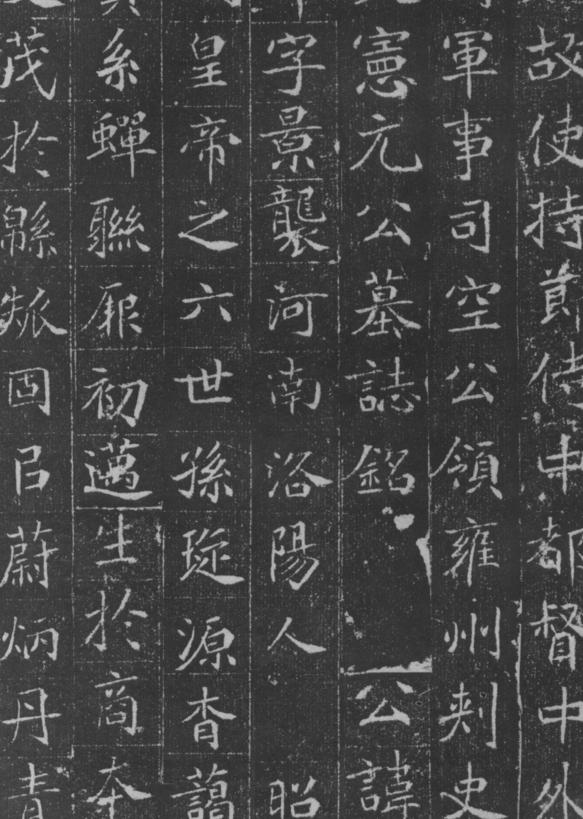 故使持節侍中都督中外
軍事司空公領雍州刾史
憲元公墓誌銘 公諱
字景襲河南洛陽人 昭
皇帝之六世孫琁源杳藹
系蟬聯厥初邁生於商夲
茂於緜瓞固㠯蔚炳丹青